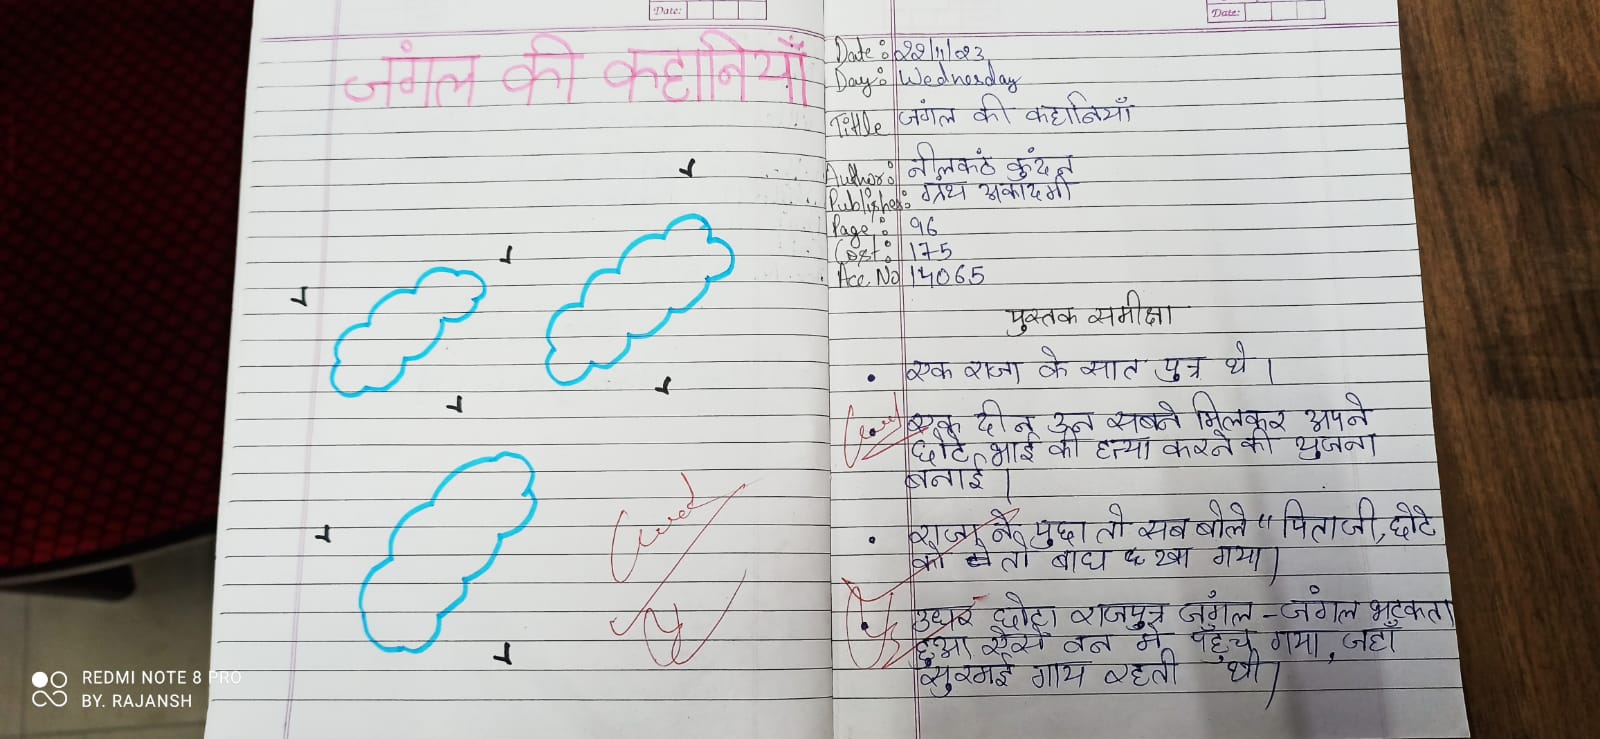 Date:
जंगल की कहानियाँ
Date:
Date: 22/11/23
Day: Wednesday
Tittle जंगल की कहानियाँ
Author: नीलकंठ कुंदन
Publisher: ग्रंथ अकादमी
Page: 96
Cost: 175
Acc. No 14065
पुस्तक समीक्षा
• एक राजा के सात पुत्र थे।
• एक दीन उन सबने मिलकर अपने
छोटे भाई की हत्या करने की युजना
बनाई।
• राजा ने पुछा तो सब बोले "पिताजी, छोटे
को तो बाघ खा गया।
• उधर छोटा राजपुत्र जंगल-जंगल भटुकता
हुआ ऐसे वन में पहुंच गया, जहाँ
सुरमई गाय रहती थी।
REDMI NOTE 8 PRO
BY. RAJANSH